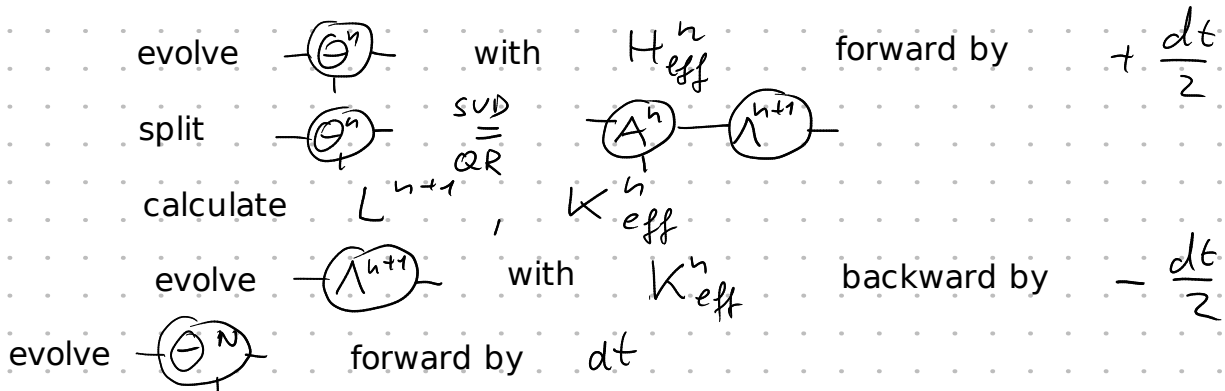 evolve Θⁿ with Hⁿ_eff forward by + dt/2
split Θⁿ SVD = QR Aⁿ Λⁿ⁺¹
calculate Lⁿ⁺¹, Kⁿ_eff
evolve Λⁿ⁺¹ with Kⁿ_eff backward by - dt/2
evolve Θᴺ forward by dt